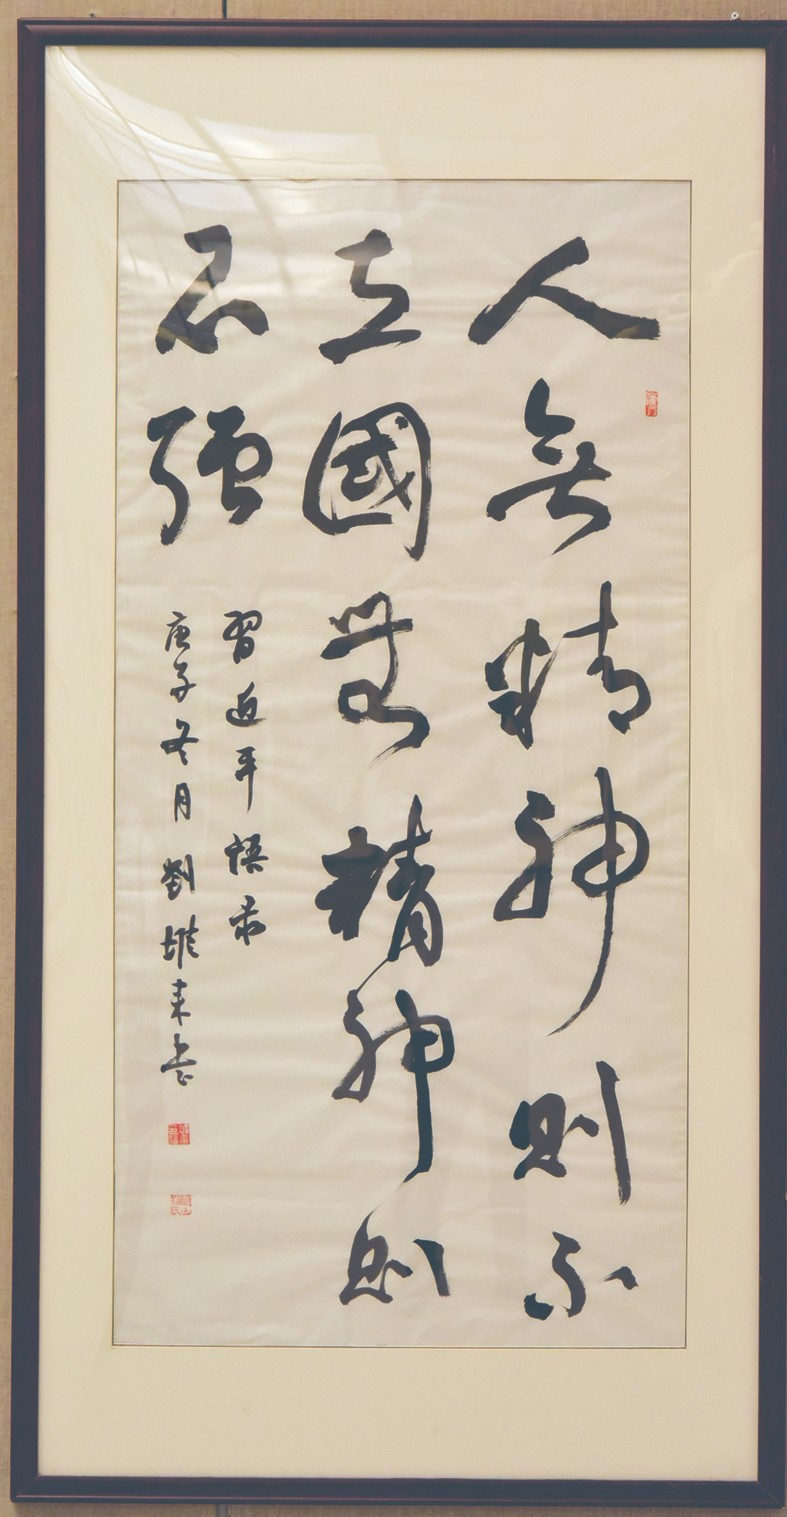 人無精神則不
立國無精神則
不强
習近平語录
庚子冬月劉堆来書